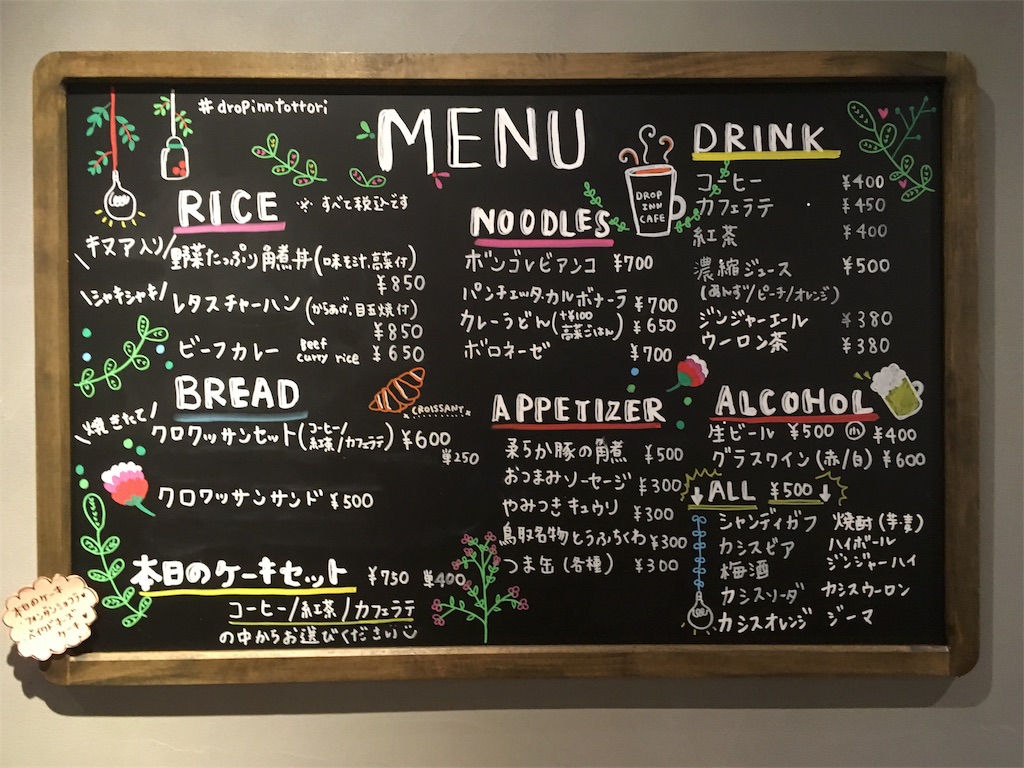 #dropinntottori
MENU
RICE ※すべて税込です
キヌア入り
野菜たっぷり角煮丼(味そ汁,高菜付)
¥850
シャキシャキ
レタスチャーハン(からあげ、目玉焼付)
¥850
ビーフカレー Beef curry rice ¥650
BREAD
CROISSANT
焼きたて
クロワッサンセット(コーヒー/紅茶/カフェラテ) ¥600
単250
クロワッサンサンド ¥500
本日のケーキセット ¥750 単400
コーヒー/紅茶/カフェラテ
の中からお選びください
本日のケーキ
NOODLES
ボンゴレビアンコ ¥700
パンチェッタ.カルボナーラ ¥700
カレーうどん(+¥100 高菜ごはん) ¥650
ボロネーゼ ¥700
APPETIZER
柔らか豚の角煮 ¥500
おつまみソーセージ ¥300
やみつきキュウリ ¥300
鳥取名物とうふちくわ ¥300
つま缶(各種) ¥300
DROP
INN
CAFE
DRINK
コーヒー ¥400
カフェラテ ¥450
紅茶 ¥400
濃縮ジュース ¥500
(あんず/ピーチ/オレンジ)
ジンジャーエール ¥380
ウーロン茶 ¥380
ALCOHOL
生ビール ¥500 小 ¥400
グラスワイン(赤/白) ¥600
ALL ¥500
シャンディガフ 焼酎(芋麦)
カシスビア ハイボール
梅酒 ジンジャーハイ
カシスソーダ カシスウーロン
カシスオレンジ ジーマ